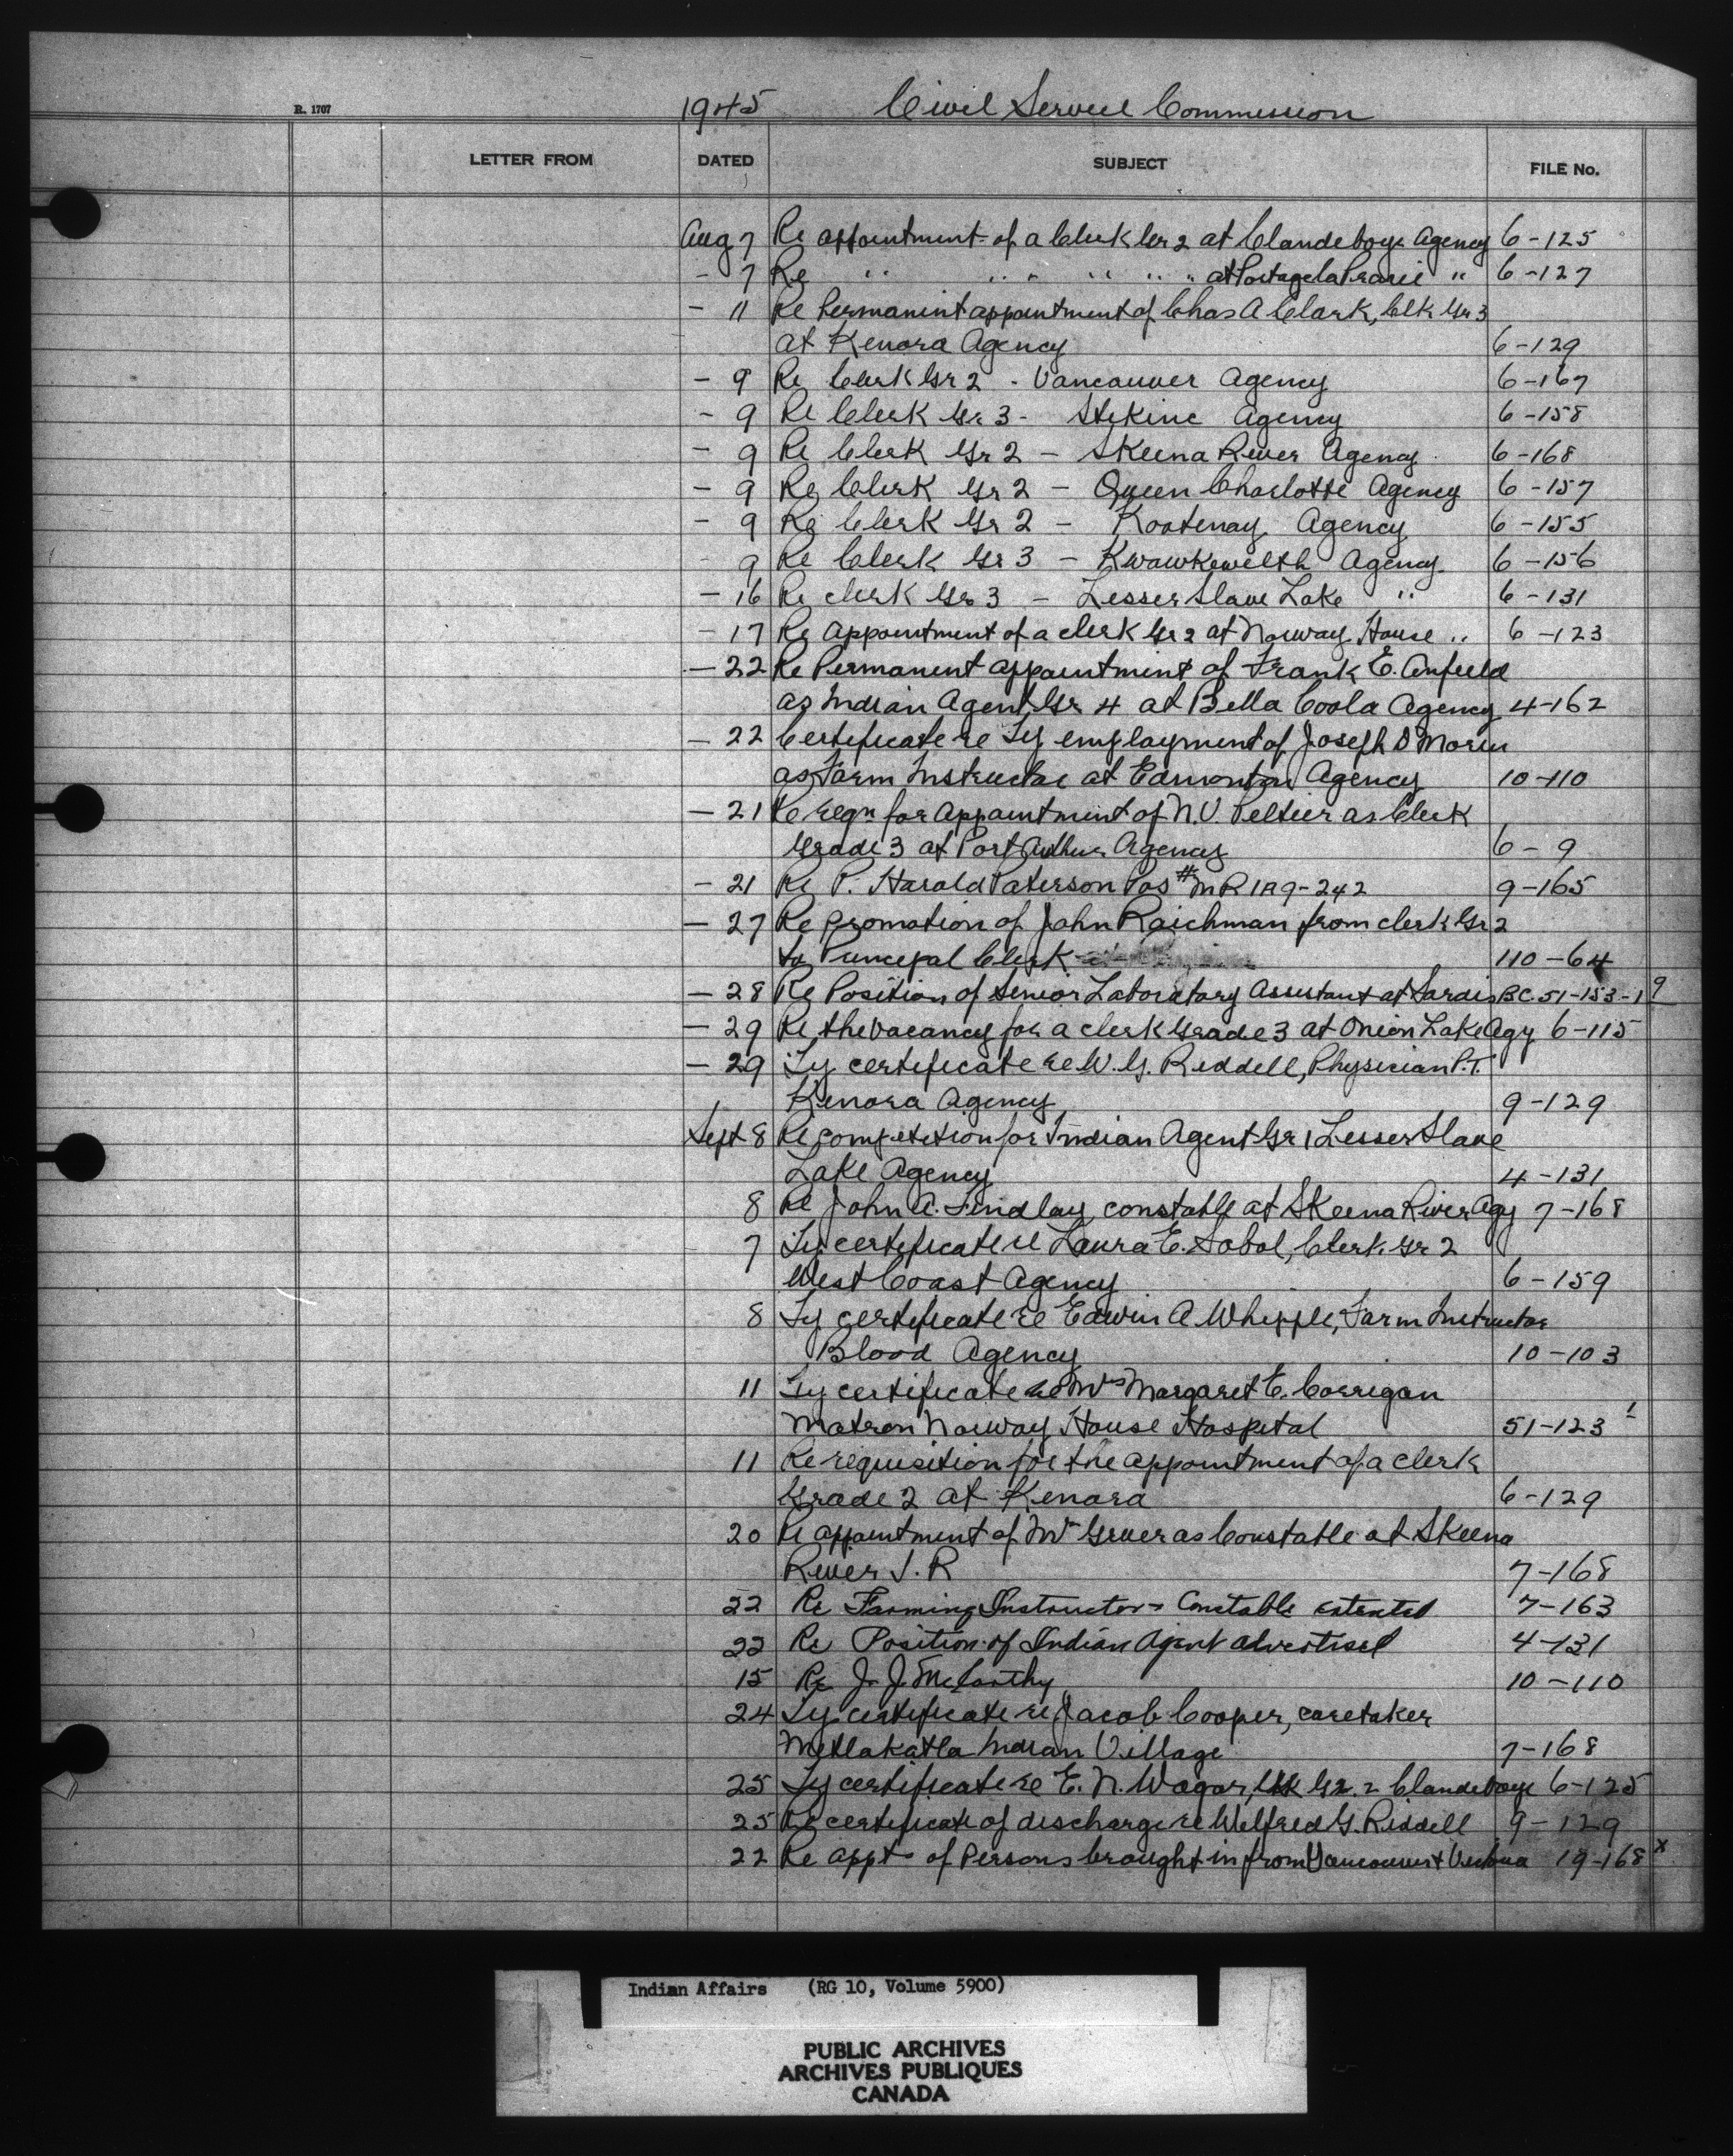 R. 1707
1945 Civil Service Commission
LETTER FROM DATED SUBJECT FILE No.
Aug 7 Re appointment of a Clerk Gr 2 at Clandeboye Agency 6-125
- 7 Re " " " " " " at Portage la Prarie " 6-127
- 11 Re Permanint appointment of Chas A Clark, Clk Gr 3
at Kenora Agency 6-129
- 9 Re Clerk Gr 2 - Vancouver Agency 6-167
- 9 Re Clerk Gr 3 - Stikine Agency 6-158
- 9 Re Clerk Gr 2 - Skeena River Agency 6-168
- 9 Re Clerk Gr 2 - Queen Charlotte Agency 6-157
- 9 Re Clerk Gr 2 - Kootenay Agency 6-155
- 9 Re Clerk Gr 3 - Kwawkewelth Agency 6-156
- 16 Re clerk Gr 3 - Lesser Slave Lake " 6-131
- 17 Re Appointment of a clerk Gr 2 at Norway House " 6-123
- 22 Re Permanent appointment of Frank E. Anfield
as Indian Agent Gr 4 at Bella Coola Agency 4-162
- 22 Certificate re Ty employment of Joseph D Morin
as Farm Instructor at Edmonton Agency 10-110
- 21 Re reqn for appointment of N.V. Peltier as Clerk
Grade 3 at Port Arthur Agency 6-9
- 21 Re P. Harold Paterson Pos # MR IA9-242 9-165
- 27 Re promotion of John Raichman from clerk Gr 2
to Principal Clerk 110-64
- 28 Re Position of Senior Laboratory Assistant at Sardis B.C. 51-153-19
- 29 Re the vacancy for a clerk Grade 3 at Onion Lake Agy 6-115
- 29 Ty certificate re W.G. Riddell, Physician P.T.
Kenora Agency 9-129
Sept 8 Re competition for Indian Agent Gr 1 Lesser Slave
Lake Agency 4-131
8 Re John A. Findlay constable at Skeena River Agy 7-168
7 Ty certificate re Laura E. Sobol, Clerk Gr 2
West Coast Agency 6-159
8 Ty certificate re Edwin A Whipple, Farm Instructor
Blood Agency 10-103
11 Ty certificate re Mrs Margaret E. Corrigan
Matron Norway House Hospital 51-123 1
11 Re requisition for the appointment of a clerk
Grade 2 at Kenora 6-129
20 Re appointment of Mr Gruer as Constable at Skeena
River I.R 7-168
22 Re Farming Instructor - Constable 7-163
22 Re Position of Indian Agent advertised 4-131
15 Re J. J. McCarthy 10-110
24 Ty certificate re Jacob Cooper, caretaker
Metlakatla Indian Village 7-168
25 Ty certificate re E. N. Wagar, Clk Gr. 2 Clandeboye 6-125
25 Re certificate of discharge re Wilfred G. Riddell 9-129
22 Re appt of Persons brought in from Vancouver & Victoria 19-168 x
Indian Affairs (RG 10, Volume 5900)
PUBLIC ARCHIVES
ARCHIVES PUBLIQUES
CANADA